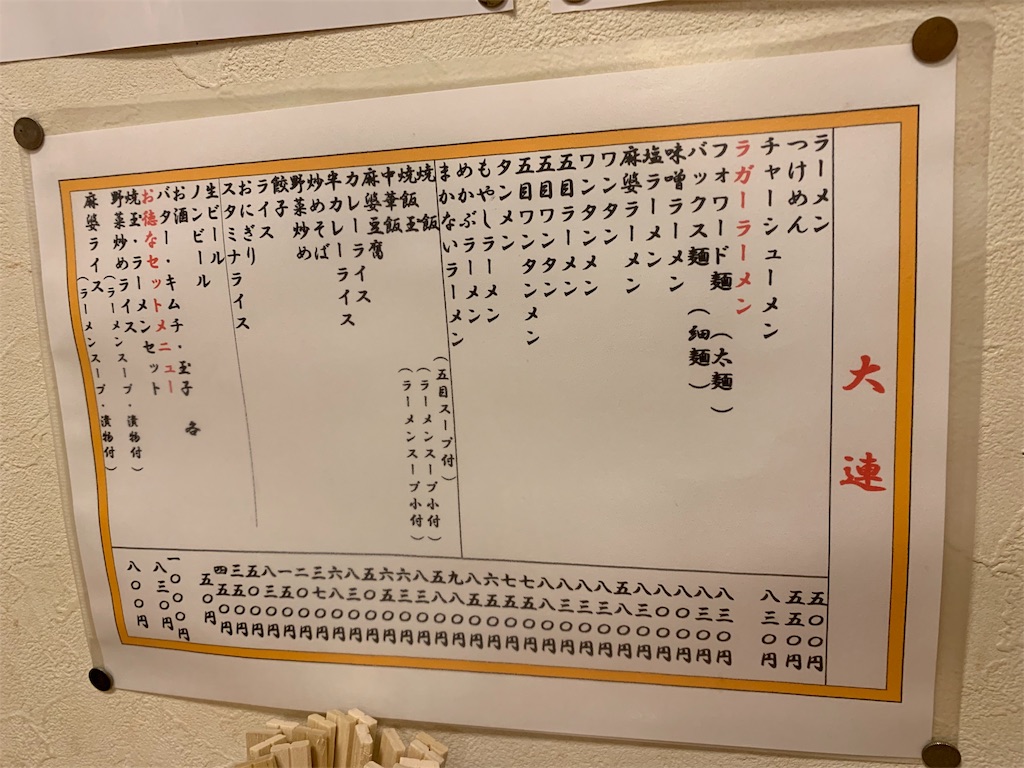 大連
ラーメン
つけめん
チャーシューメン
ラガーラーメン
フォワード麺(太麺)
バックス麺(細麺)
味噌ラーメン
塩ラーメン
麻婆ラーメン
ワンタン
ワンタンメン
五目ラーメン
五目ワンタン
五目ワンタンメン
タンメン
もやしラーメン
めかぶラーメン
まかないラーメン
焼飯(五目スープ付)
焼飯玉(ラーメンスープ小付)
中華飯(ラーメンスープ小付)
麻婆豆腐
カレーライス
半カレーライス
炒めそば
野菜炒め
餃子
ライス
おにぎり
スタミナライス
生ビール
ノンビール
お酒
バター・キムチ・玉子 各
お徳なセットメニュー
焼玉・ラーメンセット
野菜炒めライス(ラーメンスープ・漬物付)
麻婆ライス(ラーメンスープ・漬物付)
五〇〇円
五五〇円
八三〇円
八三〇円
八三〇円
八〇〇円
八〇〇円
八三〇円
五八〇円
八三〇円
八三〇円
八三〇円
八八〇円
七五〇円
七五〇円
六五〇円
八八〇円
九八〇円
五五〇円
八三〇円
六三〇円
六五〇円
五〇〇円
八三〇円
六八〇円
三七〇円
二〇〇円
一五〇円
八三〇円
五〇〇円
三五〇円
四五〇円
五〇円
一〇〇〇円
八三〇円
八〇〇円